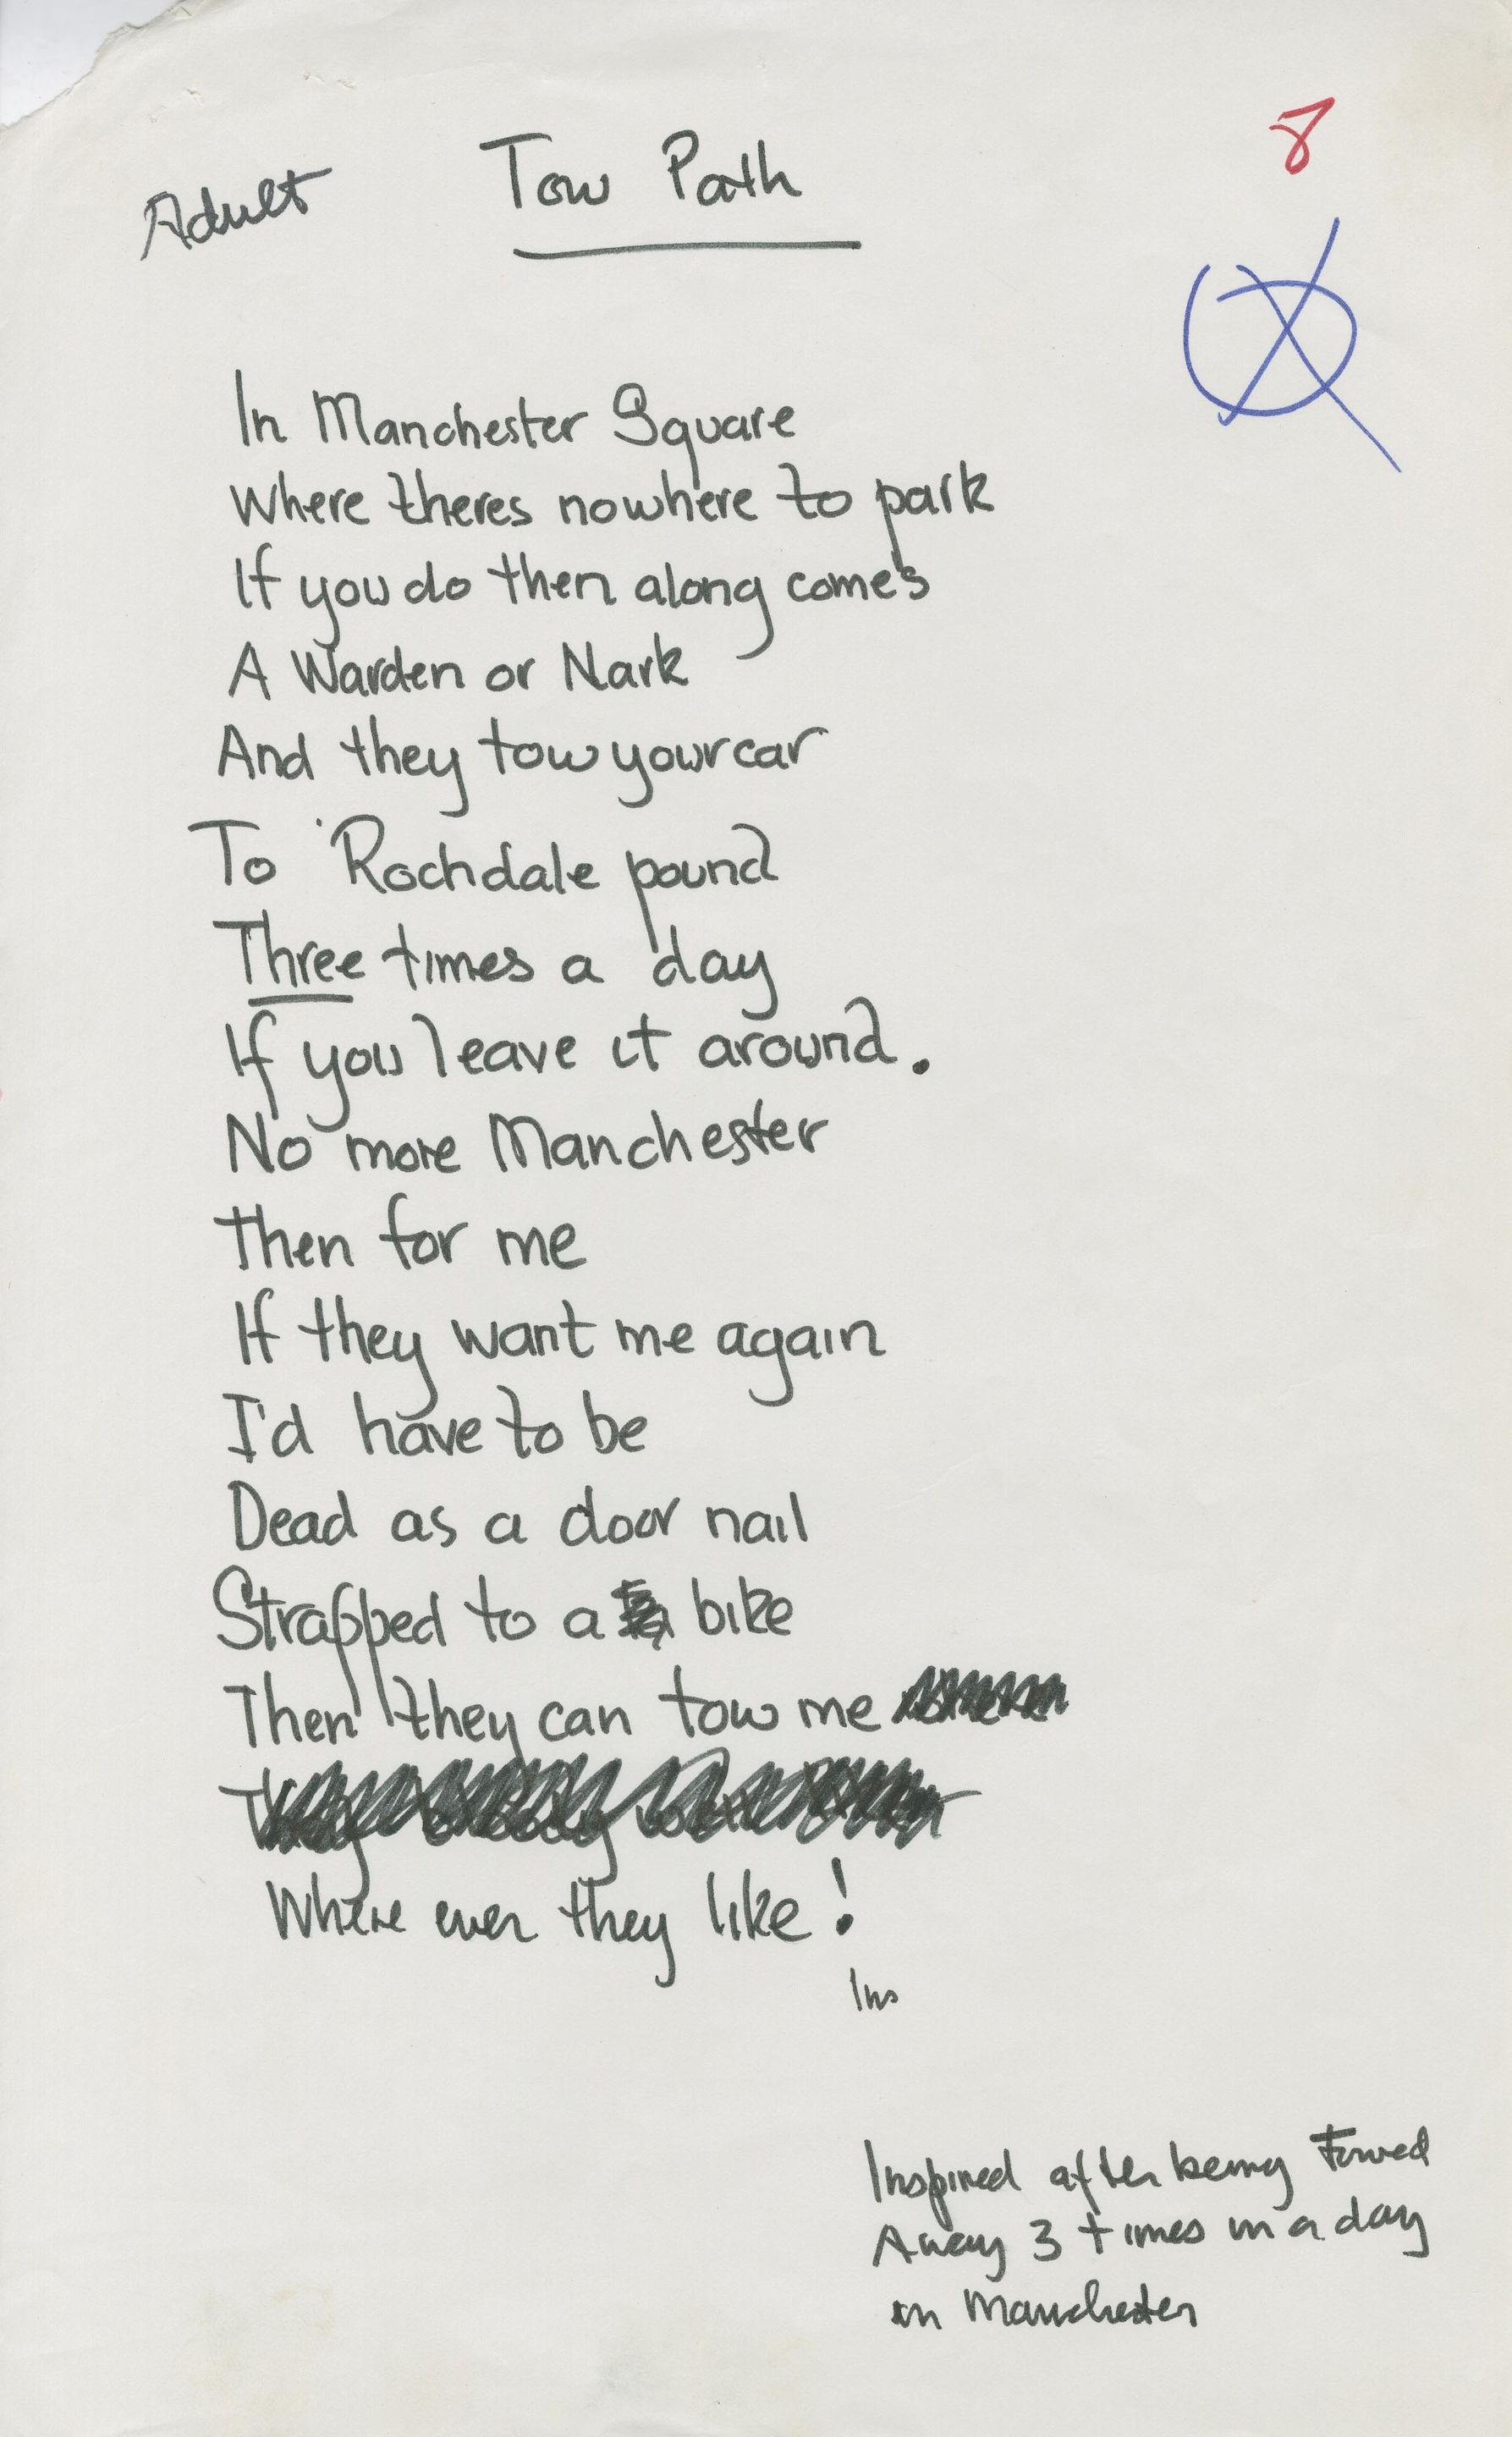 8
Adult
Tow Path
In Manchester Square
Where theres nowhere to park
If you do then along comes
A Warden or Nark
And they tow your car
To Rochdale pound
Three times a day
If you leave it around.
No more Manchester
then for me
If they want me again
I'd have to be
Dead as a door nail
Strapped to a bike
Then they can tow me
Where ever they like!
Ins
Inspired after being Towed
Away 3 times in a day
in Manchester